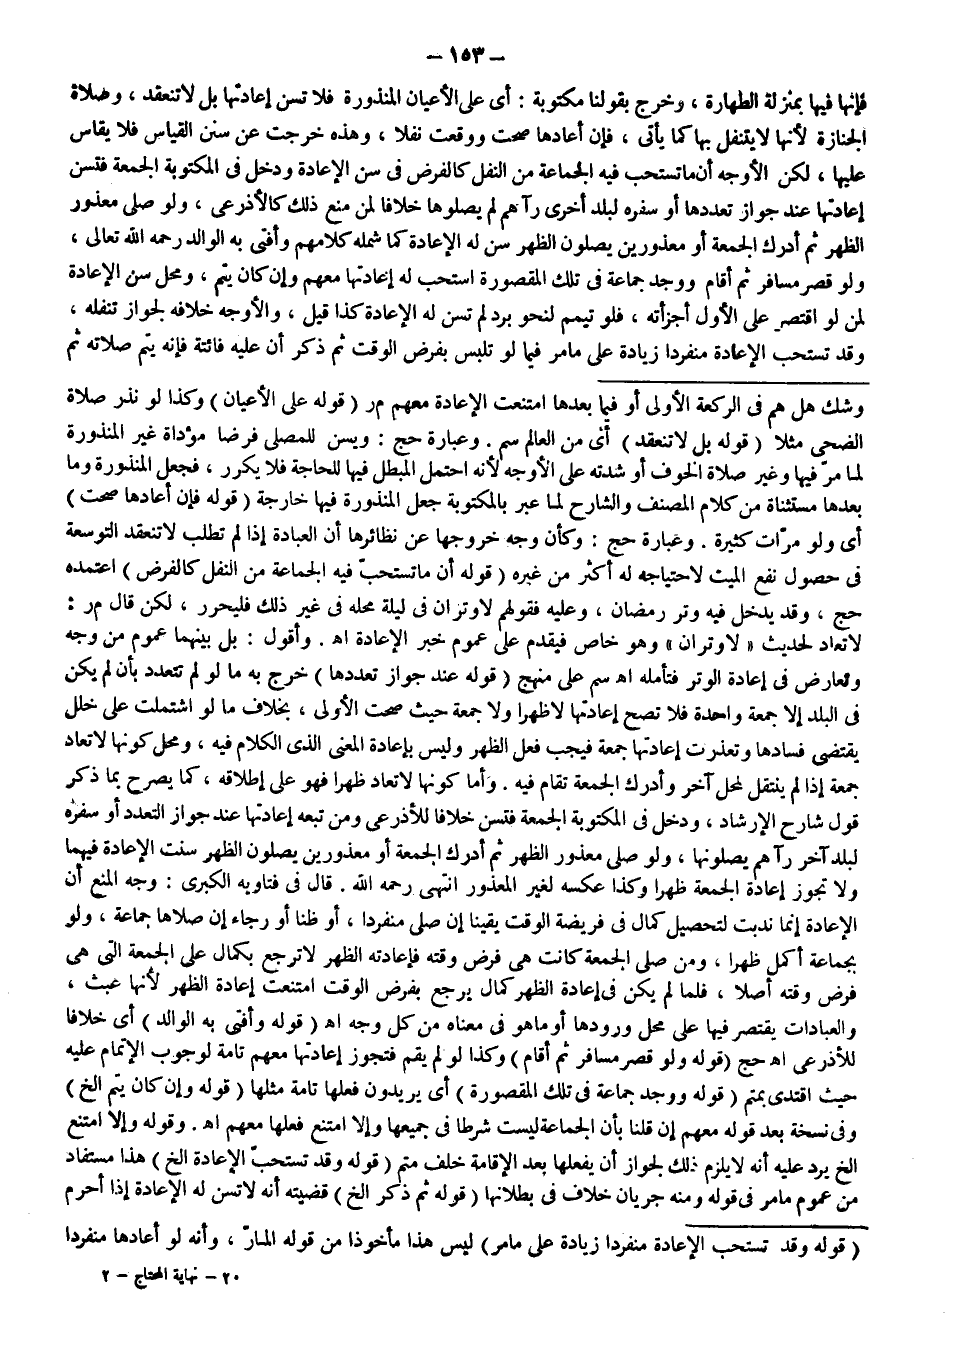 – ١٥٣ –
فإنها فيها بمنزلة الطهارة ، وخرج بقولنا مكتوبة : أى على الأعيان المنذورة فلا تسن إعادتها بل لا تنعقد ، وصلاة
الجنازة لأنها لا يتنفل بها كما يأتى ، فإن أعادها صحت ووقعت نفلا ، وهذه خرجت عن سنن القياس فلا يقاس
عليها ، لكن الأوجه أن ما تستحب فيه الجماعة من النفل كالفرض فى سن الإعادة ودخل فى المكتوبة الجمعة فتسن
إعادتها عند جواز تعددها أو سفره لبلد أخرى رآهم لم يصلوها خلافا لمن منع ذلك كالأذرعى ، ولو صلى معذور
الظهر ثم أدرك الجمعة أو معذورين يصلون الظهر سن له الإعادة كما شمله كلامهم وأفتى به الوالد رحمه الله تعالى ،
ولو قصر مسافر ثم أقام ووجد جماعة فى تلك المقصورة استحب له إعادتها معهم وإن كان يتم ، ومحل سن الإعادة
لمن لو اقتصر على الأول أجزأته ، فلو تيمم لنحو برد لم تسن له الإعادة كذا قيل ، والأوجه خلافه لجواز تنفله ،
وقد تستحب الإعادة منفردا زيادة على مامر فيما لو تلبس بفرض الوقت ثم ذكر أن عليه فائتة فإنه يتم صلاته ثم
وشك هل هم فى الركعة الأولى أو فيما بعدها امتنعت الإعادة معهم مر ( قوله على الأعيان ) وكذا لو نذر صلاة
الضحى مثلا ( قوله بل لا تنعقد ) أى من العالم سم . وعبارة حج : ويسن للمصلى فرضا مؤداة غير المنذورة
لما مرّ فيها وغير صلاة الخوف أو شدته على الأوجه لأنه احتمل المبطل فيها للحاجة فلا يكرر ، فجعل المنذورة وما
بعدها مستثناة من كلام المصنف والشارح لما عبر بالمكتوبة جعل المنذورة فيها خارجة ( قوله فإن أعادها صحت )
أى ولو مرّات كثيرة . وعبارة حج : وكأن وجه خروجها عن نظائرها أن العبادة إذا لم تطلب لا تنعقد التوسعة
فى حصول نفع الميت لاحتياجه له أكثر من غيره ( قوله أن ما تستحبّ فيه الجماعة من النفل كالفرض ) اعتمده
حج ، وقد يدخل فيه وتر رمضان ، وعليه فقولهم لاوتران فى ليلة محله فى غير ذلك فليحرر ، لكن قال مر :
لا تعاد لحديث « لاوتران » وهو خاص فيقدم على عموم خبر الإعادة اه . وأقول : بل بينهما عموم من وجه
وتعارض فى إعادة الوتر فتأمله اه سم على منهج ( قوله عند جواز تعددها ) خرج به ما لو لم تتعدد بأن لم يكن
فى البلد إلا جمعة واحدة فلا تصح إعادتها لاظهرا ولا جمعة حيث صحت الأولى ، بخلاف ما لو اشتملت على خلل
يقتضى فسادها وتعذرت إعادتها جمعة فيجب فعل الظهر وليس بإعادة المعنى الذى الكلام فيه ، ومحل كونها لا تعاد
جمعة إذا لم ينتقل لمحل آخر وأدرك الجمعة تقام فيه . وأما كونها لا تعاد ظهرا فهو على إطلاقه ، كما يصرح بما ذكر
قول شارح الإرشاد ، ودخل فى المكتوبة الجمعة فتسن خلافا للأذرعى ومن تبعه إعادتها عند جواز التعدد أو سفره
لبلد آخر رآهم يصلونها ، ولو صلى معذور الظهر ثم أدرك الجمعة أو معذورين يصلون الظهر سنت الإعادة فيهما
ولا تجوز إعادة الجمعة ظهرا وكذا عكسه لغير المعذور انتهى رحمه الله . قال فى فتاويه الكبرى : وجه المنع أن
الإعادة إنما ندبت لتحصيل كمال فى فريضة الوقت يقينا إن صلى منفردا ، أو ظنا أو رجاء إن صلاها جماعة ، ولو
بجماعة أكمل ظهرا ، ومن صلى الجمعة كانت هى فرض وقته فإعادته الظهر لا ترجع بكمال على الجمعة التى هى
فرض وقته أصلا ، فلما لم يكن فى إعادة الظهر كمال يرجع بفرض الوقت امتنعت إعادة الظهر لأنها عبث ،
والعبادات يقتصر فيها على محل ورودها أو ماهو فى معناه من كل وجه اه ( قوله وأفتى به الوالد ) أى خلافا
للأذرعى اه حج (قوله ولو قصر مسافر ثم أقام) وكذا لو لم يقم فتجوز إعادتها معهم تامة لوجوب الإتمام عليه
حيث اقتدى بمتم ( قوله ووجد جماعة فى تلك المقصورة ) أى يريدون فعلها تامة مثلها ( قوله وإن كان يتم الخ )
وفى نسخة بعد قوله معهم إن قلنا بأن الجماعة ليست شرطا فى جميعها وإلا امتنع فعلها معهم اه . وقوله وإلا امتنع
الخ يرد عليه أنه لا يلزم ذلك لجواز أن يفعلها بعد الإقامة خلف متم ( قوله وقد تستحبّ الإعادة الخ ) هذا مستفاد
من عموم مامر فى قوله ومنه جريان خلاف فى بطلانها ( قوله ثم ذكر الخ ) قضيته أنه لا تسن له الإعادة إذا أحرم
( قوله وقد تستحب الإعادة منفردا زيادة على مامر) ليس هذا مأخوذا من قوله المارّ ، وأنه لو أعادها منفردا
٢٠ – نهاية المحتاج – ٢